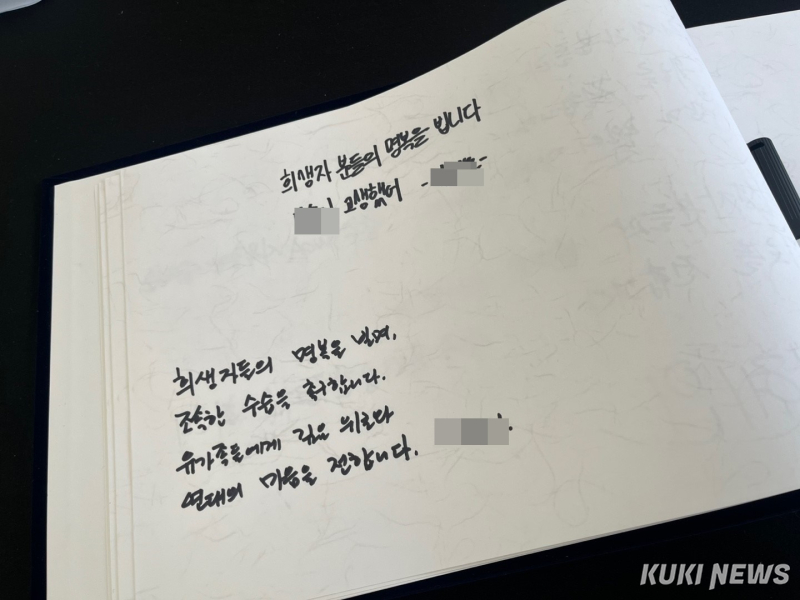 희생자 분들의 명복을 빕니다
고생했어
희생자들의 명복을 빌며,
조속한 수습을 촉구합니다.
유가족들에게 깊은 위로와
연대의 마음을 전합니다.
KUKI NEWS